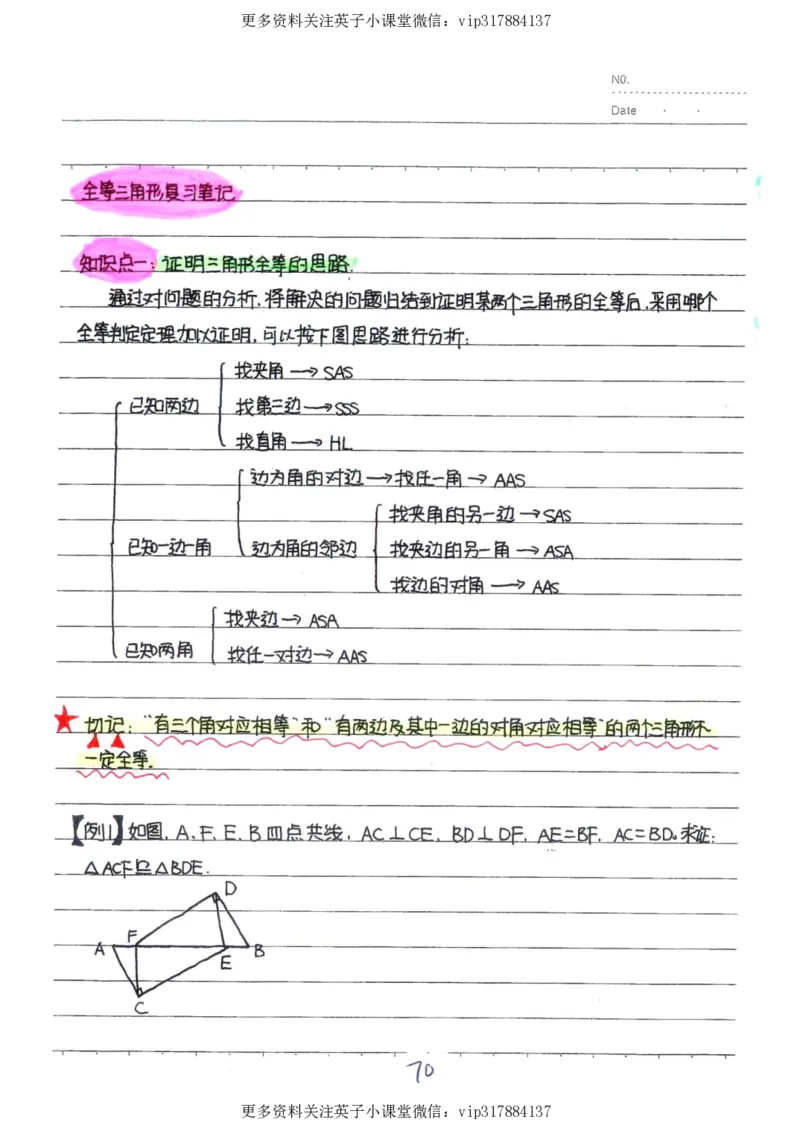 更多资料关注英子小课堂微信：vip317884137
NO.
Date
全等三角形复习笔记
知识点一：证明三角形全等的思路.
通过对问题的分析，将解决的问题归结到证明某两个三角形的全等后，采用哪个
全等判定定理加以证明，可以按下图思路进行分析：
找夹角→SAS
已知两边 找第三边→SSS
找直角→HL
边为角的对边→找任一角→AAS
找夹角的另一边→SAS
已知一边一角 边为角的邻边 找夹边的另一角→ASA
找边的对角→AAS
找夹边→ASA
已知两角 找任一对边→AAS
★切记：“有三个角对应相等”和“有两边及其中一边的对角对应相等”的两个三角形不
一定全等.
【例1】如图，A、F、E、B四点共线，AC⊥CE，BD⊥DF，AE=BF，AC=BD。求证：
△ACF≌△BDE.
D
F
A
B
E
C
70
更多资料关注英子小课堂微信：vip317884137